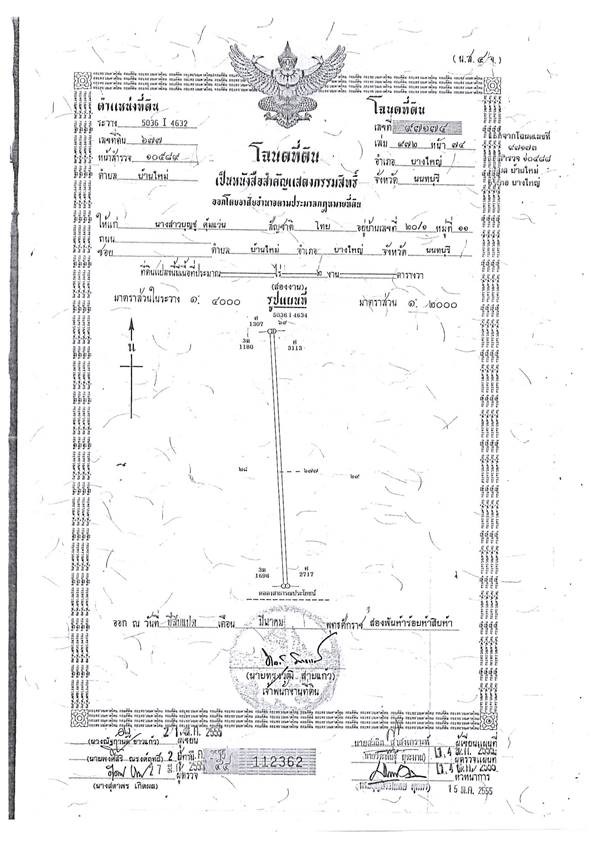 (น.ส. ๔ จ.)
ตำแหน่งที่ดิน
ระวาง 5036 I 4632
เลขที่ดิน ๖๗๗
หน้าสำรวจ ๑๐๕๘๙
ตำบล บ้านใหม่
โฉนดที่ดิน
เลขที่ ๙๘๑๗๔
เล่ม ๙๗๒ หน้า ๗๔
อำเภอ บางใหญ่
จังหวัด นนทบุรี
โฉนดที่ดิน
เป็นหนังสือสำคัญแสดงกรรมสิทธิ์
ออกโดยอาศัยอำนาจตามประมวลกฎหมายที่ดิน
ให้แก่ นางสาวบุญชู คุ้มแว่น สัญชาติ ไทย อยู่บ้านเลขที่ ๒๐/๑ หมู่ที่ ๑๑
ถนน
ซอย ตำบล บ้านใหม่ อำเภอ บางใหญ่ จังหวัด นนทบุรี
ที่ดินแปลงนี้มีเนื้อที่ประมาณ ไร่ ๒ งาน ตารางวา
(สองงาน)
มาตราส่วนในระวาง ๑: ๔๐๐๐ รูปแผนที่ มาตราส่วน ๑: ๒๐๐๐
5036 I 4634
ศ ๖๙
1307
3ต ศ
1180 3113
น
๒๘ ๖๗๗ ๒๙
3ต ศ
1696 2717
คลองสาธารณประโยชน์
ออก ณ วันที่ ยี่สิบแปด เดือน มีนาคม พุทธศักราช สองพันห้าร้อยห้าสิบห้า
(นายทรงวุฒิ สายแก้ว)
เจ้าพนักงานที่ดิน
ผู้เขียน
ผู้ทาน
ผู้ตรวจ
112362
ผู้เขียนแผนที่
ผู้ตรวจแผนที่
หัวหน้าการ
15 มี.ค. 2555